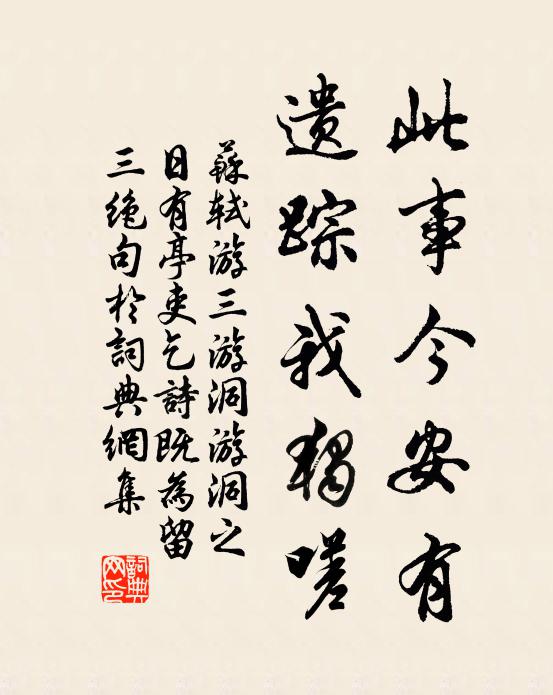 此事今安有
遗踪我独嗟
蘇轼游三游洞游洞之
日有亭吏乞詩既為留
三绝句於詞典網集
詞典网印